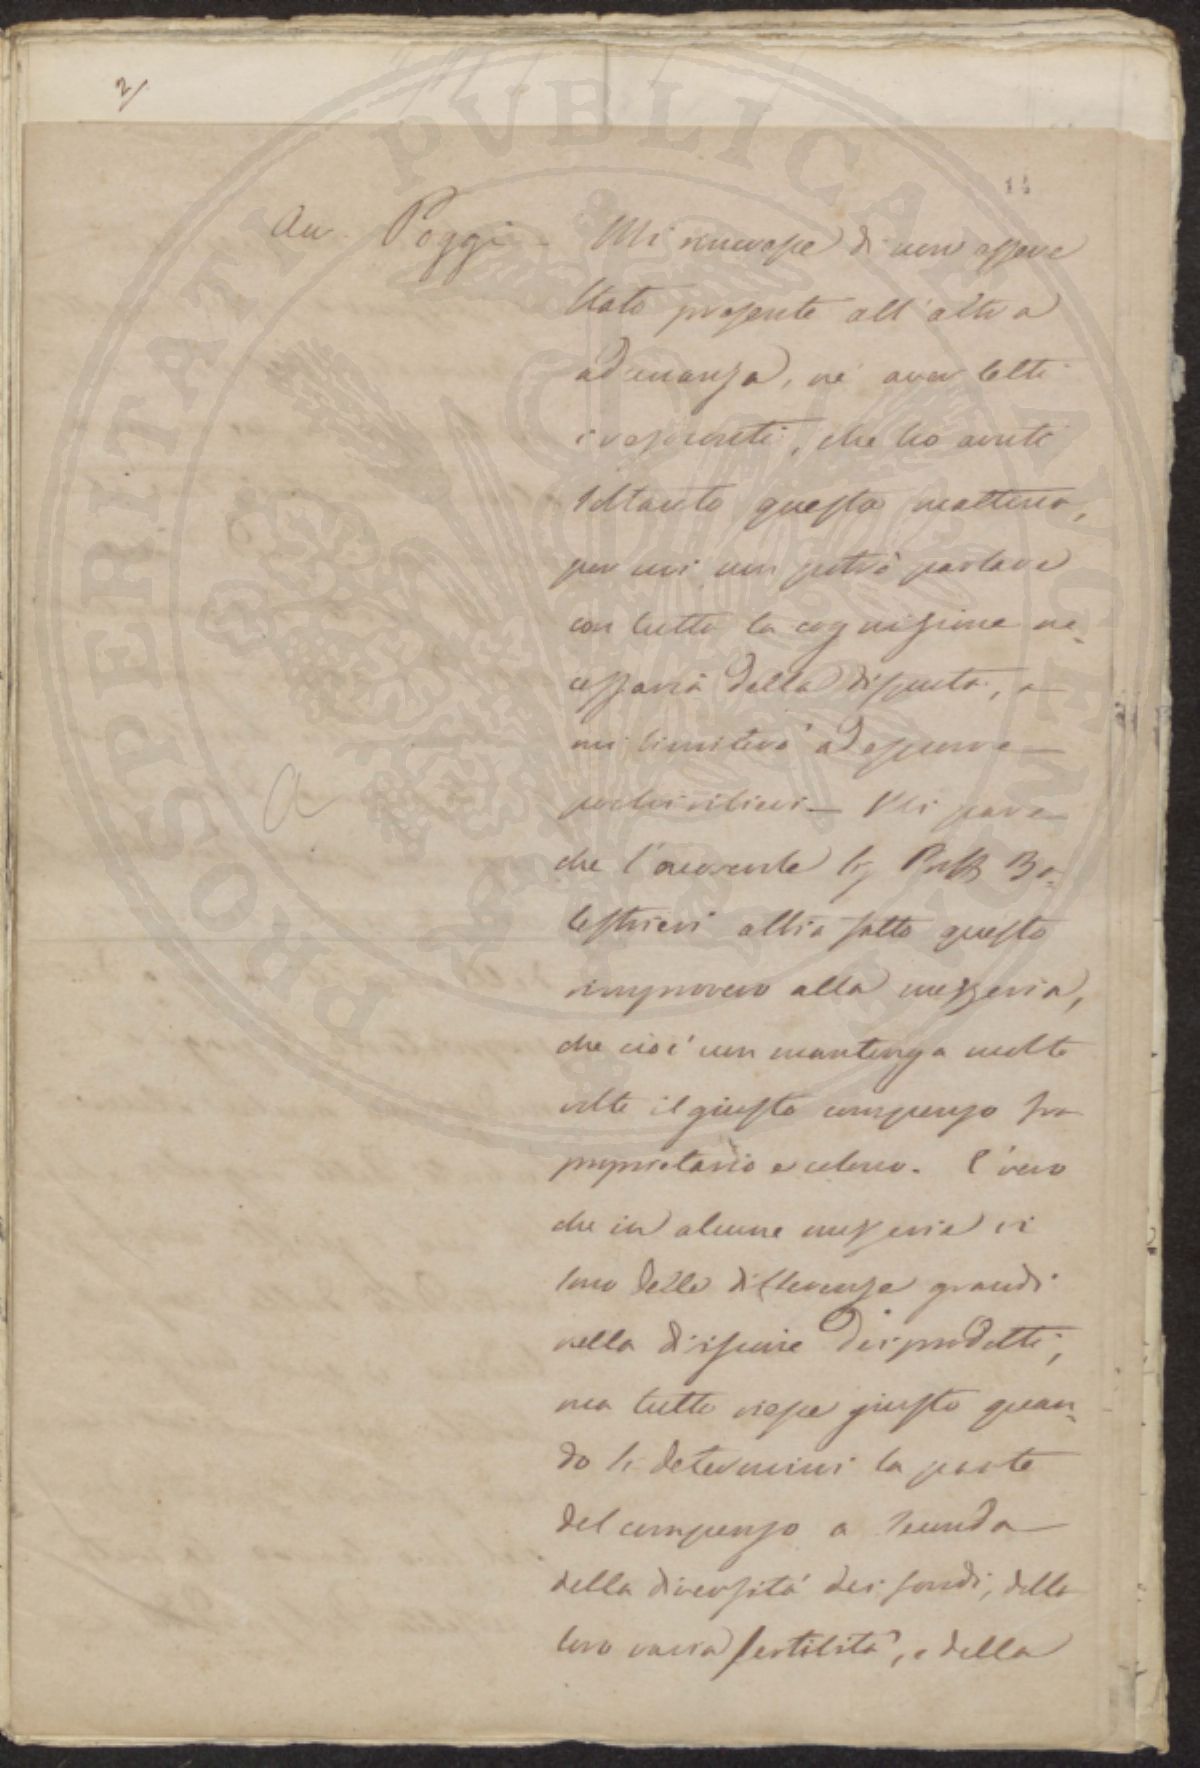 2/
14
Av. Poggi - Mi rincresce di non essere
stato presente all'altra
adunanza, nè aver letti
i resoconti, che ho avuti
soltanto questa mattina,
per cui non potrò parlare
con tutta la cognizione ne-
cessaria della disputa, e
mi limiterò ad esporre
pochi rilievi - Mi pare
che l'onorevole Sig Profr Ba-
lestrieri abbia fatto questo
rimprovero alla mezzeria,
che cioè non mantenga molte
volte il giusto compenso fra
proprietario e colono. È vero
che in alcune mezzerie vi
sono delle differenze grandi
nella divisione dei prodotti,
ma tutto riesce giusto quan-
do si determini la parte
del compenso a seconda
della diversità dei fondi, della
loro varia fertilità, e della
a
PROSPERITATI PVBLICAE AVGENDAE